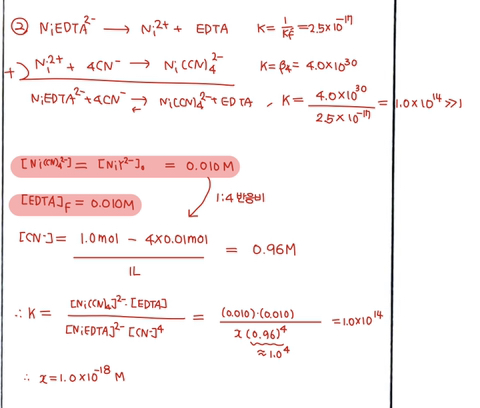 ② NiEDTA²⁻ → Ni²⁺ + EDTA K = 1/Kf = 2.5×10⁻¹⁷
+) Ni²⁺ + 4CN⁻ → Ni(CN)₄²⁻ K = β₄ = 4.0×10³⁰
NiEDTA²⁻ + 4CN⁻ ⇄ Ni(CN)₄²⁻ + EDTA , K = 4.0×10³⁰ / 2.5×10⁻¹⁷ = 1.0×10¹⁴ ≫ 1
[Ni(CN)₄²⁻] = [NiY²⁻]₀ = 0.010 M
[EDTA]F = 0.010M
1:4 반응비
[CN⁻] = 1.0mol − 4×0.01mol / 1L = 0.96M
∴ K = [Ni(CN)₄]²⁻·[EDTA] / [NiEDTA]²⁻[CN⁻]⁴ = (0.010)·(0.010) / x(0.96)⁴ = 1.0×10¹⁴
≈1.0⁴
∴ x = 1.0×10⁻¹⁸ M